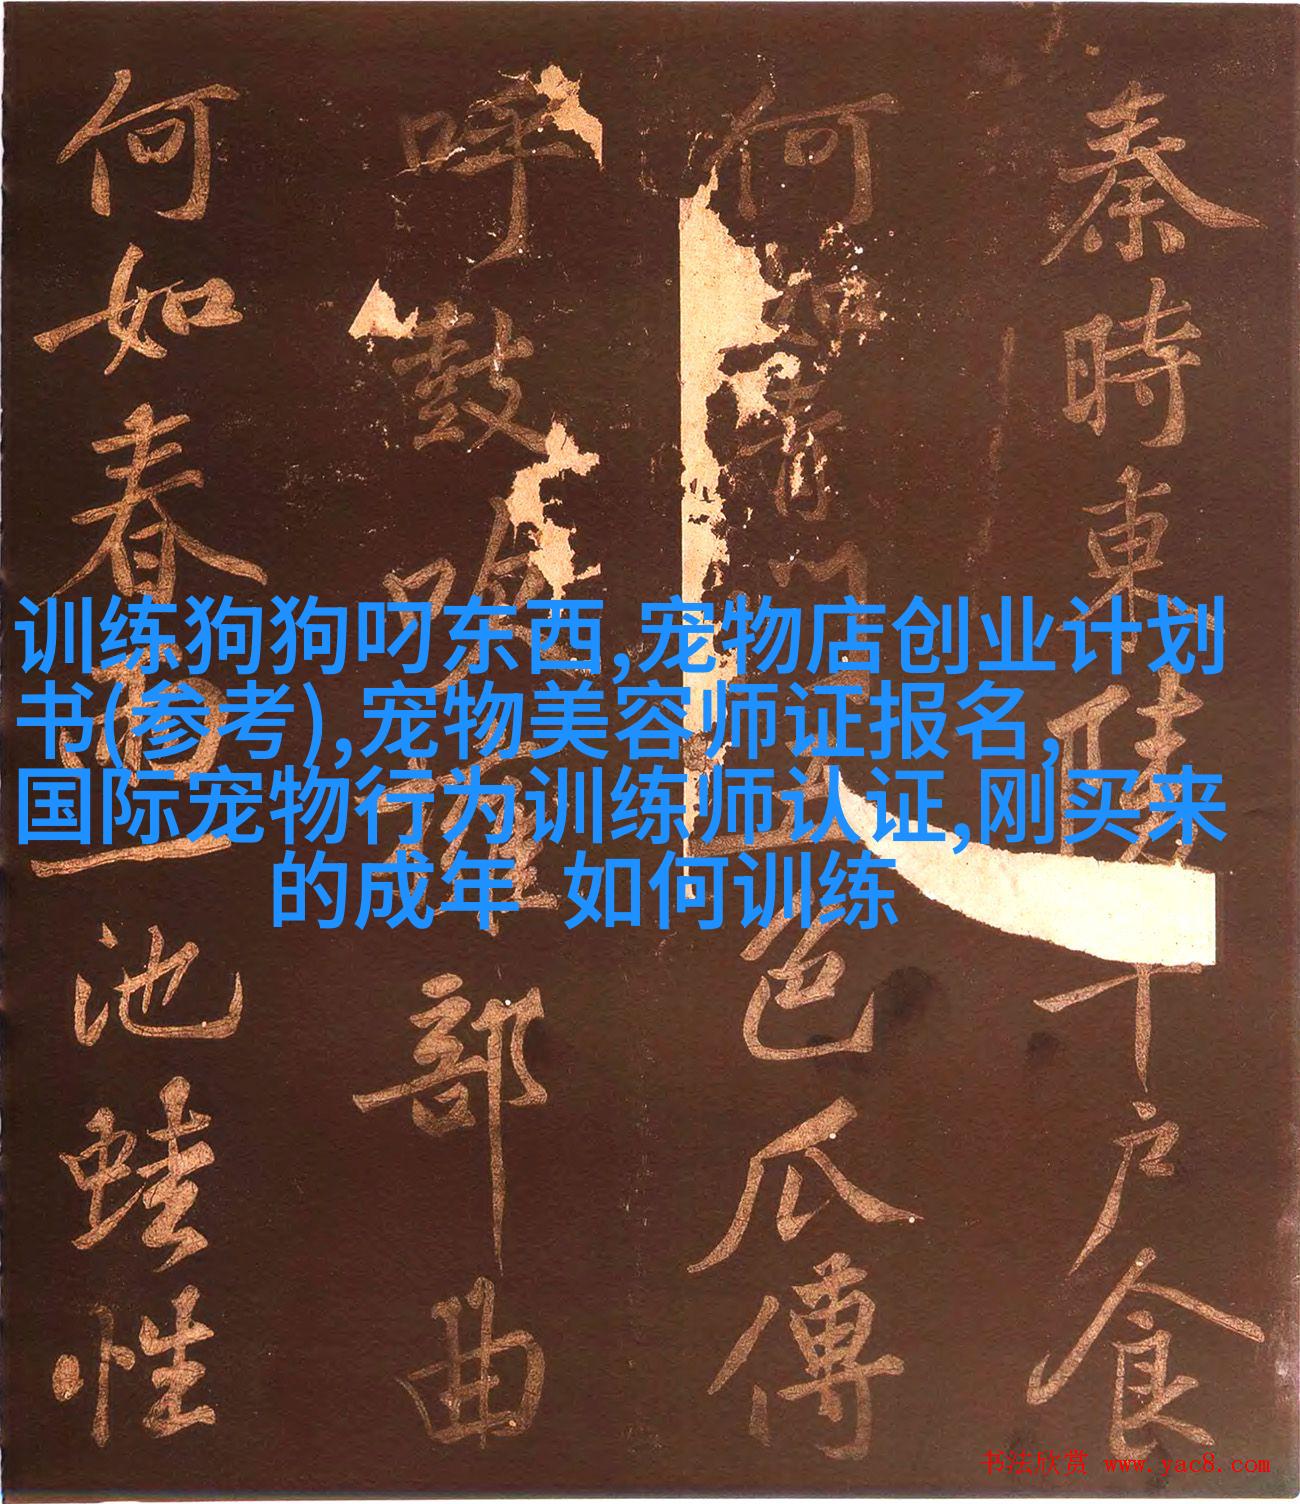 训练狗狗叼东西,宠物店创业计划
书(参考),宠物美容师证报名,
国际宠物行为训练师认证,刚买来
的成年 如何训练
秦時東陵千戶食
何如青門五色瓜傳
呼鼓吹部曲
何如春雨一池蛙性
书法欣赏 www.yac8.com